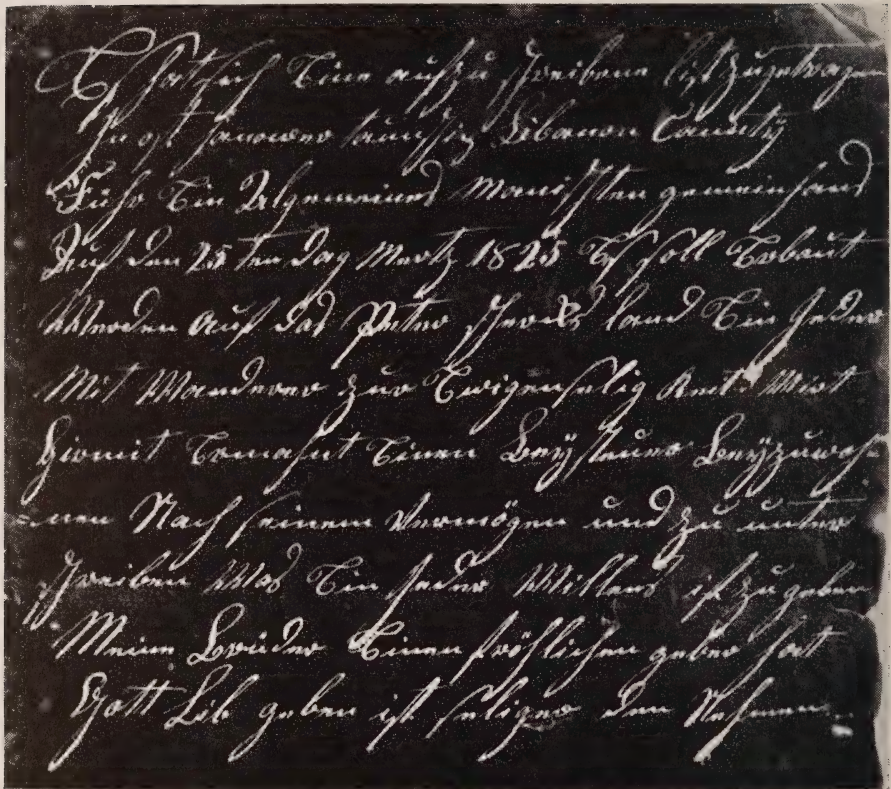 Es hat sich Eine aufzu schreibene list zugetragen
In ost hanower taunschip Libanon Caunty
Fuhr Ein Algemeines Manisten gemein haus
Auf den 25 ten Dag Mertz 1825 Es soll Erbaut
Werden auf das Peter land Ein Jeder
Mit Wanderer zur Ewigen selig keit Wirt
Hirmit Ermahnt Einen Beysteuer Beyzuwoh-
=nen Nach seinem Vermögen und zu unter
schreiben Was Ein Jeder Willens ist zu geben
Meine Brüder Einen fröhlichen geber hat
Gott Lib geben ist seliger den Nehmen